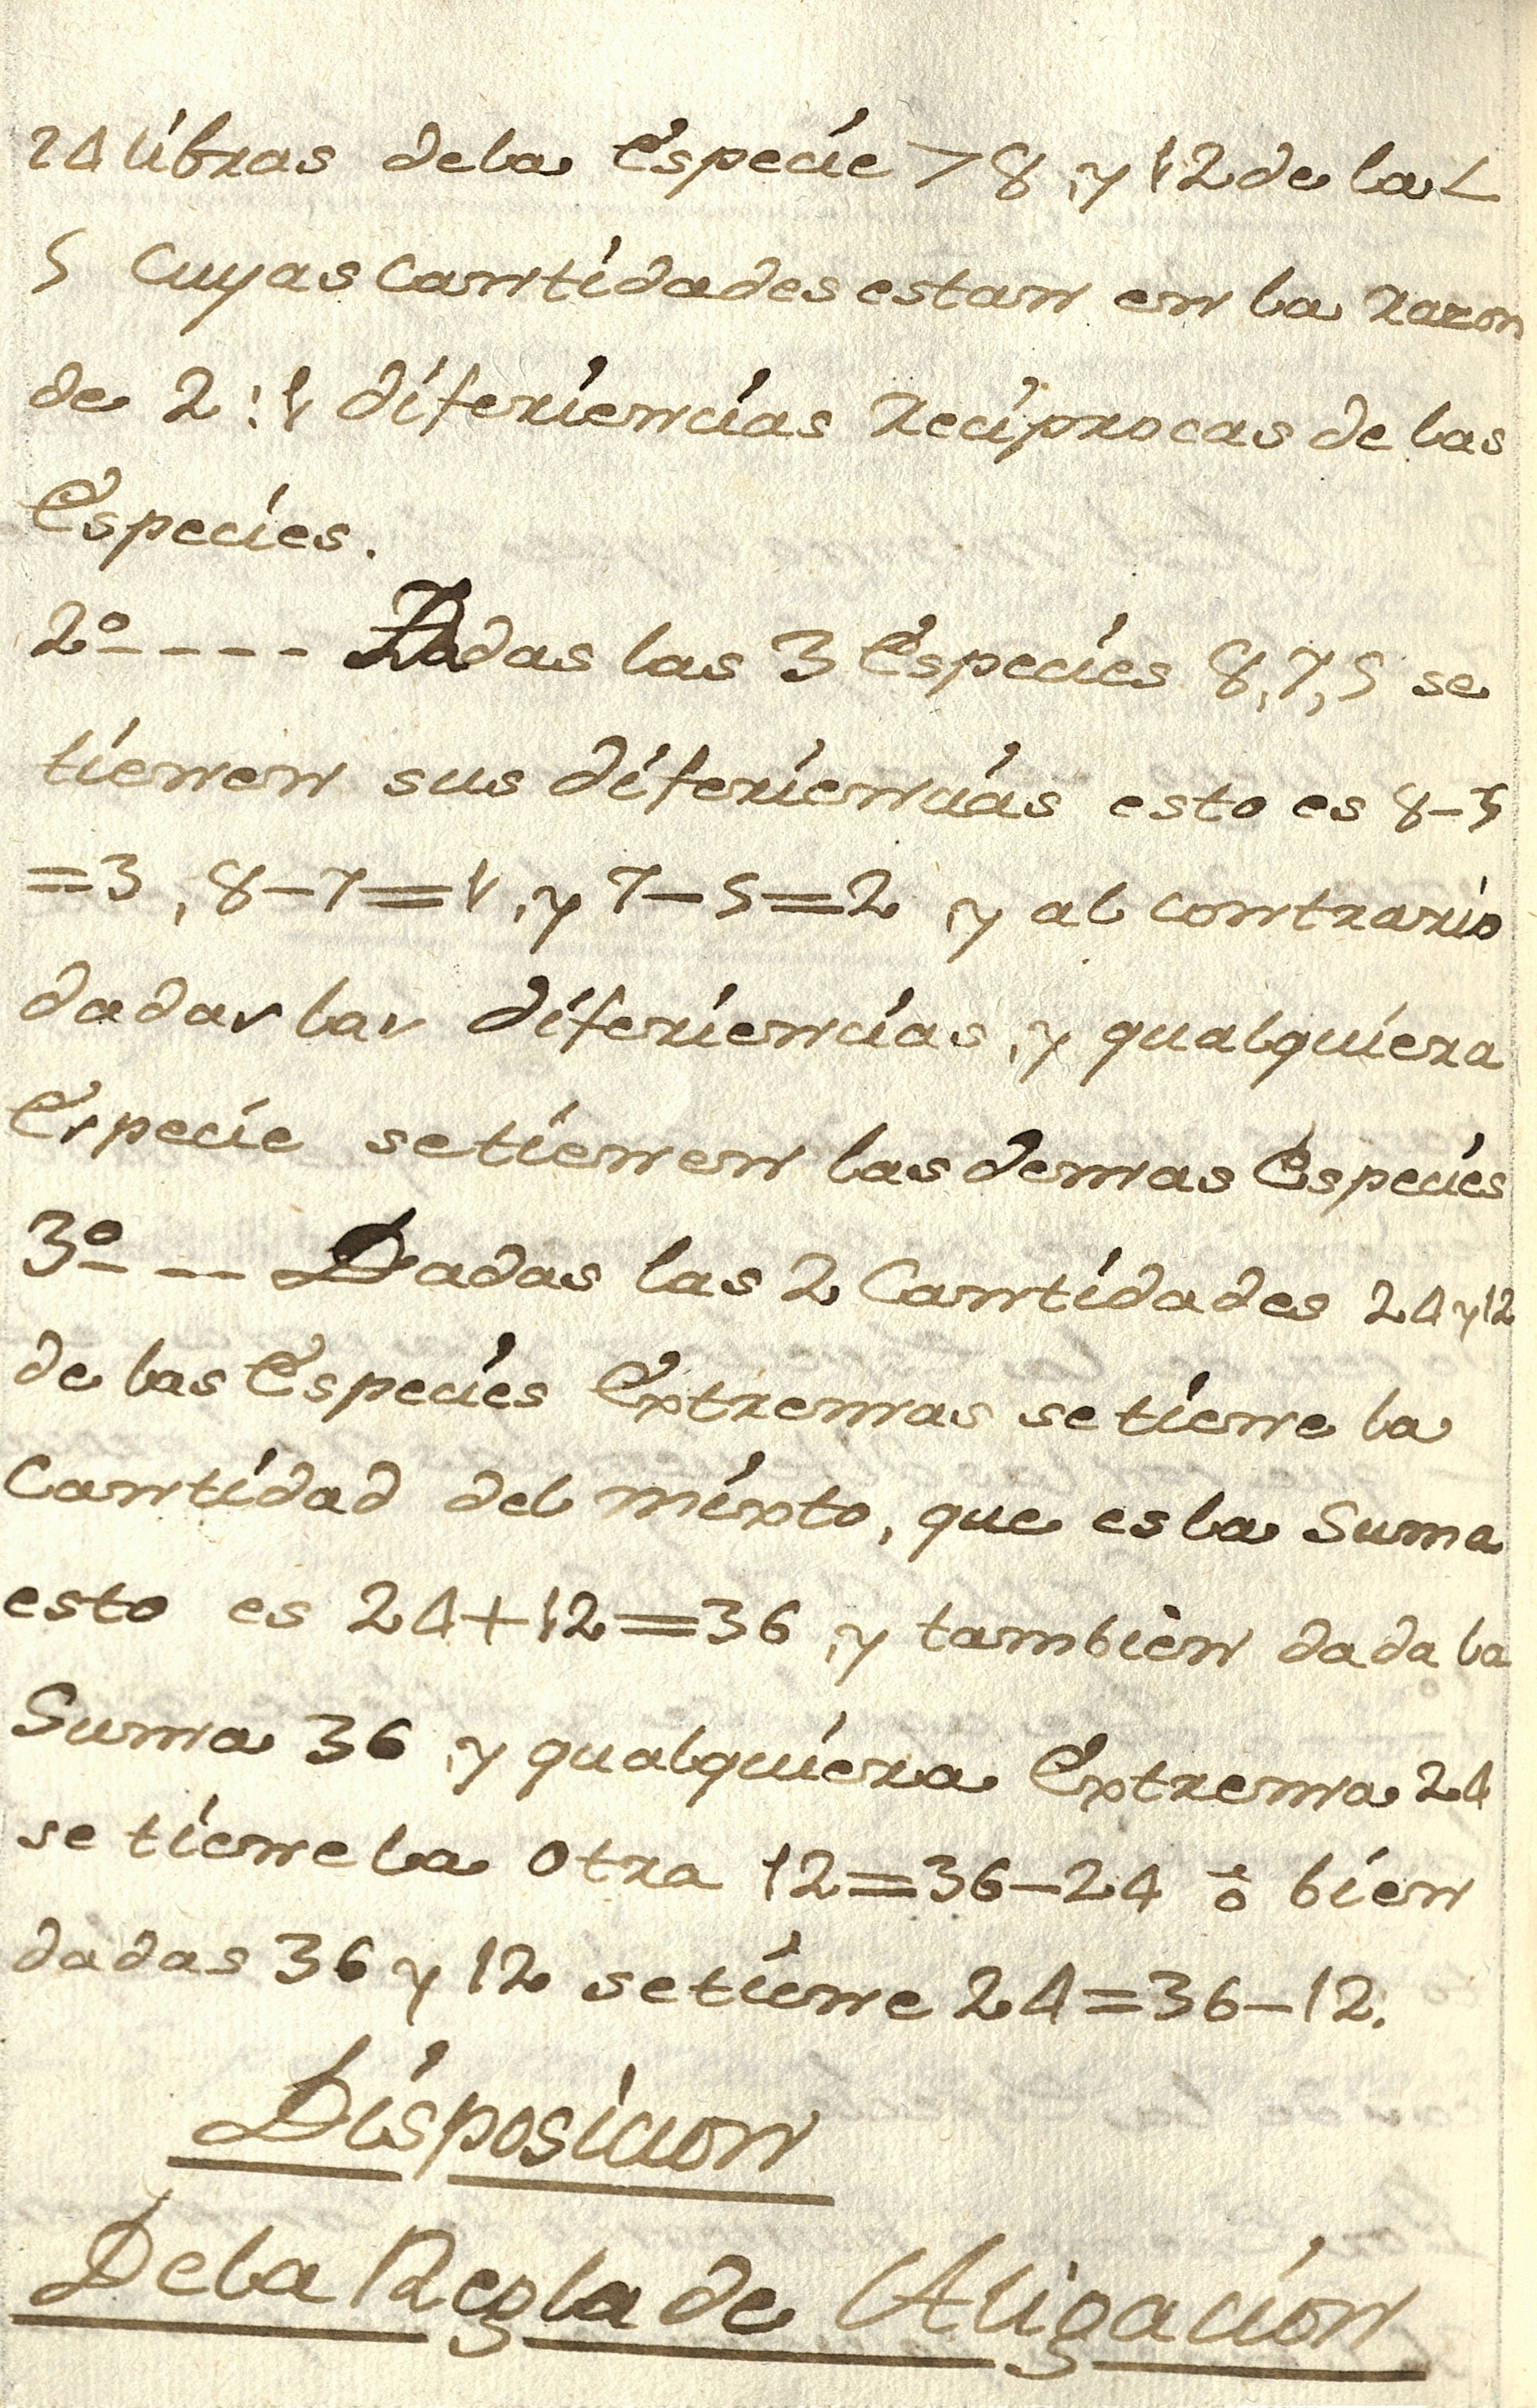 24 libras dela Especie > 8, y 12 de la <
5 Cuyas Cantidades estan en la razon
de 2:1 diferiencias reciprocas de las
Especies.
2º---- Dadas las 3 Especies 8,7,5 se
tienen sus diferiencias esto es 8-5
=3, 8-7=1, y 7-5=2, y al contrario
dadas las diferiencias, y qualquiera
Especie setienen las demas Especies
3º--- Dadas las 2 Cantidades 24 y 12
de las Especies Extremas setiene la
Cantidad del mixto, que es la Suma
esto es 24+12=36, y tambièn dada la
Suma 36, y qualquiera Extrema 24
se tiene la Otra 12=36-24 ò bien
dadas 36 y 12 setiene 24=36-12.
Disposicion
Dela Regla de Aligacion